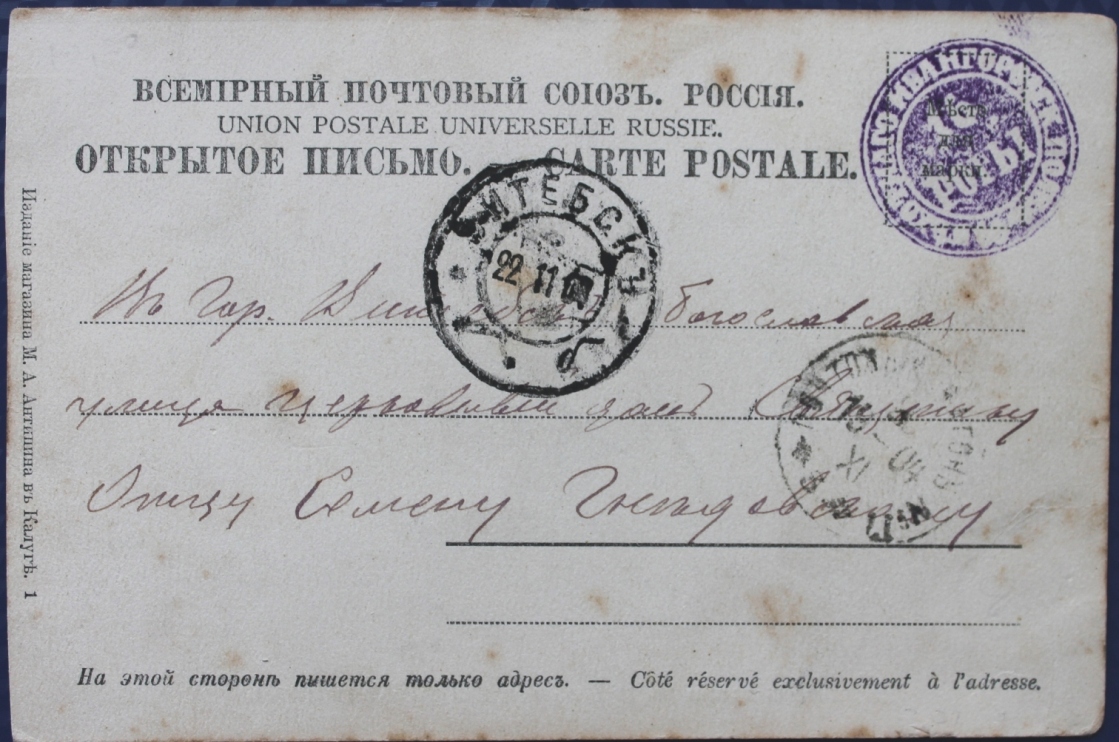 ВСЕМІРНЫЙ ПОЧТОВЫЙ СОЮЗЪ. РОССІЯ.
UNION POSTALE UNIVERSELLE RUSSIE.
ОТКРЫТОЕ ПИСЬМО. — CARTE POSTALE.
Мѣсто
для
марки.
РОТЫ
ВИТЕБСКЪ
22 11
Въ Гор. богословская
улица церковный домъ
Отцу Семену
18 XI 04
На этой сторонѣ пишется только адресъ. — Côté réservé exclusivement à l'adresse.
Изданіе магазина М. А. Антипина въ Калугѣ. 1